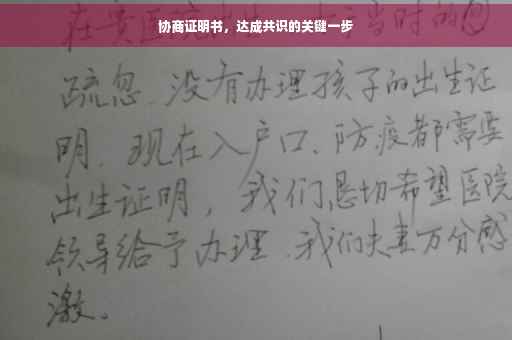 协商证明书，达成共识的关键一步
在贵医院 当时的
疏忽.没有办理孩子的出生证
明.现在入户口、防疫都需要
出生证明，我们恳切希望医院
领导给予办理.我们夫妻万分感
激。